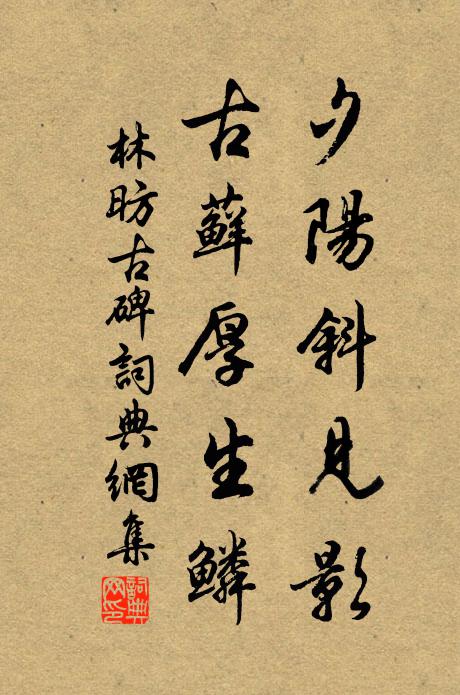 夕陽斜見影
古蘚厚生鱗
林昉古碑詞典網集
詞典
网印